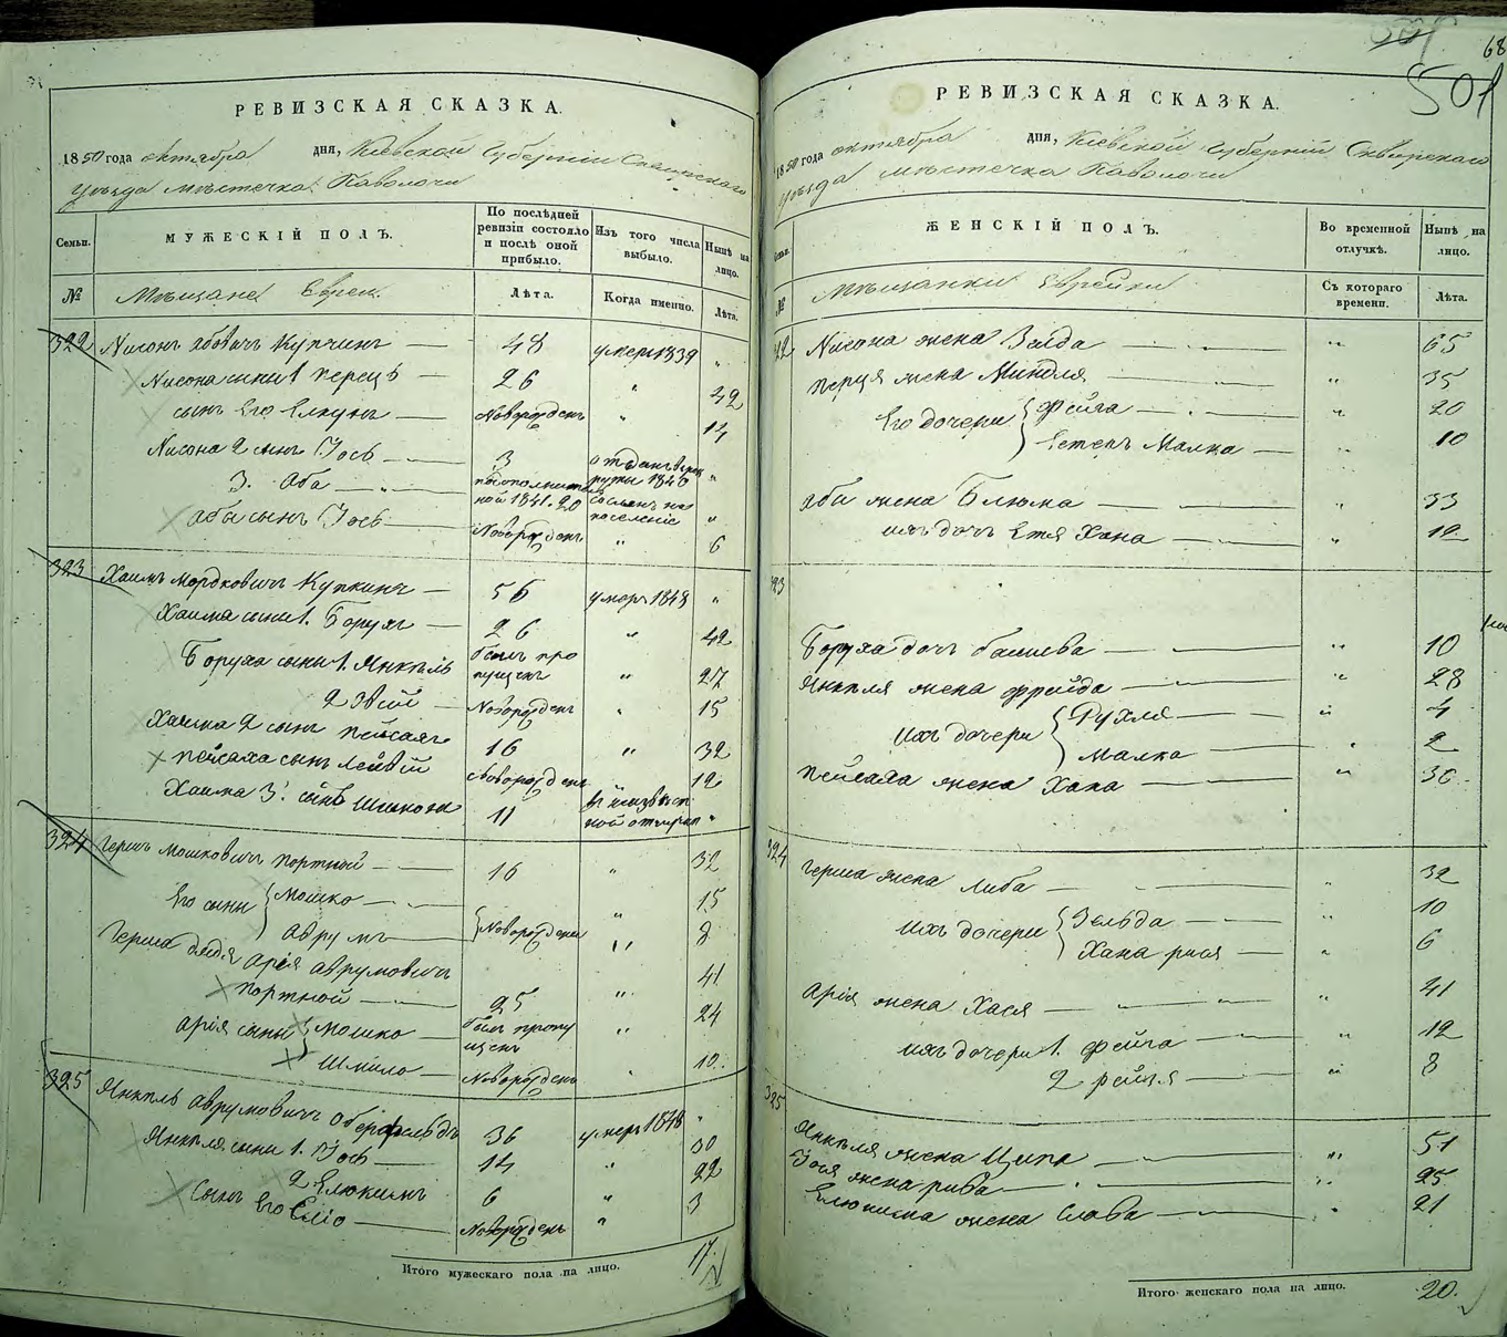 РЕВИЗСКАЯ СКАЗКА.
1850 года октября дня, Кіевской Губерніи Сквирскаго
уѣзда мѣстечка Паволочи
Семьи. МУЖЕСКІЙ ПОЛЪ. По послѣдней ревизіи состояло и послѣ оной прибыло. Изъ того числа выбыло. Нынѣ на лицо.
№ Мѣщане Евреи. Лѣта. Когда именно. Лѣта.
322 Нисонъ Абовичъ Купчинъ — 48 умеръ 1839 "
Нисона сыны 1 Перецъ — 26 " 42
сынъ Его Елкунъ — Новорожденъ " 14
Нисона 2 сынъ Іось — 3 отданъ в рекруты 1840 "
3. Аба — по дополнительной 1841. 20 сосланъ на поселеніе "
Абы сынъ Іось — Новорожденъ " 6
323 Хаимъ Мордковичъ Купкинъ — 56 умеръ 1848 "
Хаима сыны 1. Борухъ — 26 " 42
Боруха сыны 1. Янкель былъ пропущенъ " 27
2 Эвій — Новорожденъ " 15
Хаима 2 сынъ Пейсахъ 16 " 32
Пейсаха сынъ Лейвій Новорожденъ " 12
Хаима 3. сынъ Шимона 11 въ неизвѣстной отлучке "
324 Гершъ Мошковичъ Портной — 16 " 32
Его сыны { Мошко — " 15
Аврумъ — } Новорождены " 8
Герша дядя Арія Аврумовичъ
Портной — 25 " 41
Арія сыны { Мошко — былъ пропущенъ " 24
Шмило — Новорожденъ " 10.
325 Янкель Аврумовичъ Оберфельдъ 36 умеръ 1848 "
Янкеля сыны 1. Іось — 14 " 30
2 Елюкимъ 6 " 22
Сынъ Его Еліо — Новорожденъ " 3
Итого мужескаго пола на лицо. 17.
68
501
РЕВИЗСКАЯ СКАЗКА.
1850 года октября дня, Кіевской Губерніи Сквирскаго
уѣзда мѣстечка Паволочи
Семьи. ЖЕНСКІЙ ПОЛЪ. Во временной отлучкѣ. Нынѣ на лицо.
№ Мѣщанки Еврейки Съ котораго времени. Лѣта.
322 Нисона жена Зелда — " 65
Перця жена Миндля — " 35
Его дочери { Фейга — " 20
Естеръ Малка — " 10
Абы жена Блюма — " 33
ихъ дочь Етя Хана — " 12
323
Боруха дочь Башева — " 10
Янкеля жена Фрейда — " 28
Ихъ дочери { Рухля — " 4
Малка — " 2
Пейсаха жена Хана — " 30.
324 Герша жена Либа — " 32
Ихъ дочери { Зельда — " 10
Хана рися — " 6
Арія жена Хася — " 41
ихъ дочери 1. Фейга — " 12
2 рейзя — " 8
325
Янкеля жена Ципа — " 51
Іося жена рива — " 25
Елюкима жена Слава — " 21
Итого женскаго пола на лицо. 20.